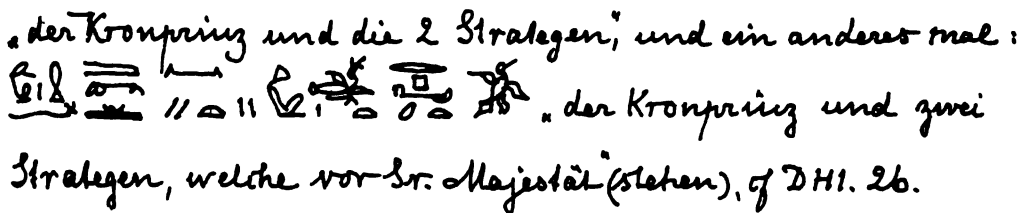 „der Kronprinz und die 2 Strategen“, und ein anderes mal:
„der Kronprinz und zwei
Strategen, welche vor Sr. Majestät“ (stehen), cf DHI. 26.